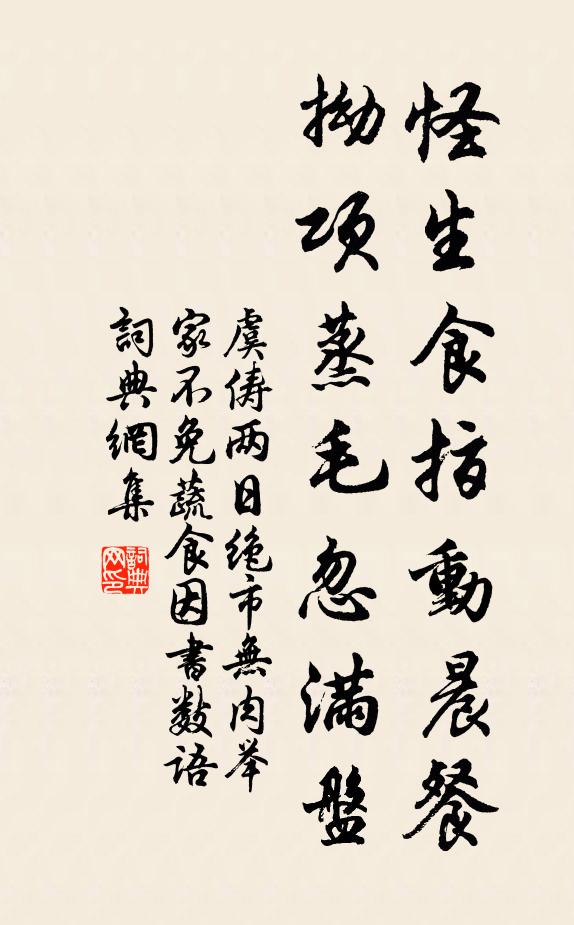 怪生食指動晨餐
拗項蒸毛忽滿盤
虞儔两日絶市無肉举
家不免蔬食因書数语
詞典網集
詞典网印